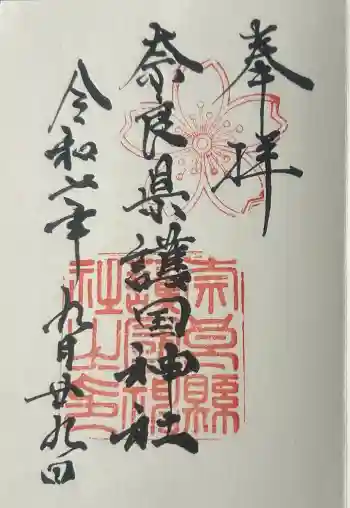 奉拝
奈良県護国神社
令和七年九月廿九日
奈良縣
護國神
社之印